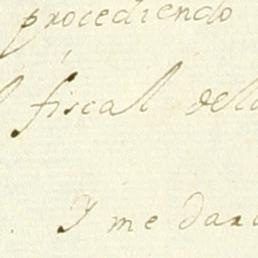 procediendo
fiscal dell
Y me dara